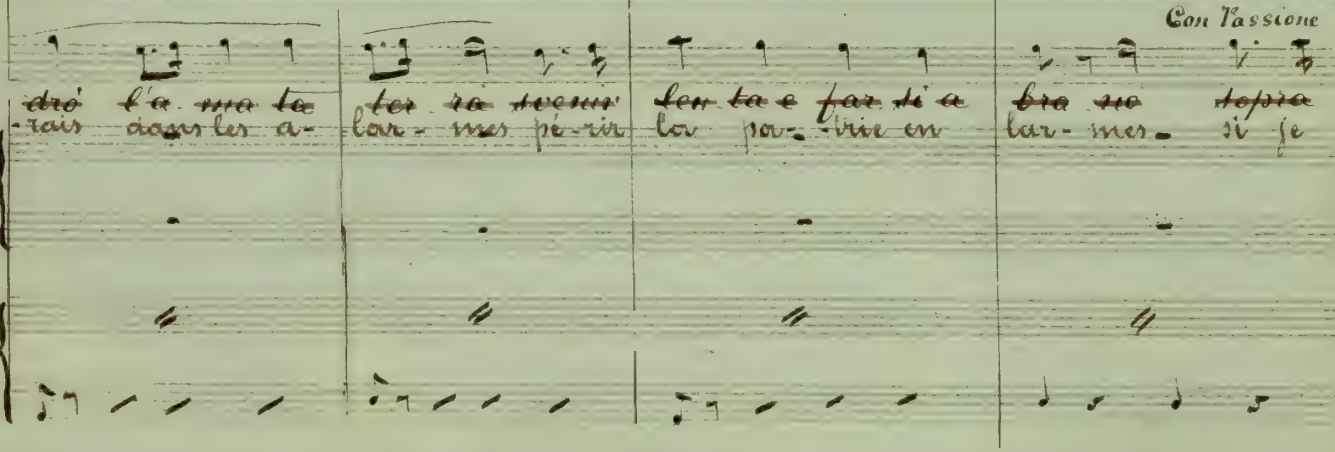 Con Passione
drò l'a ma ta ter ra svenir len ta e far si a bra no sopra
-rais dans les a- lar- mes pé-rir la pa-trie en lar-mes- si je